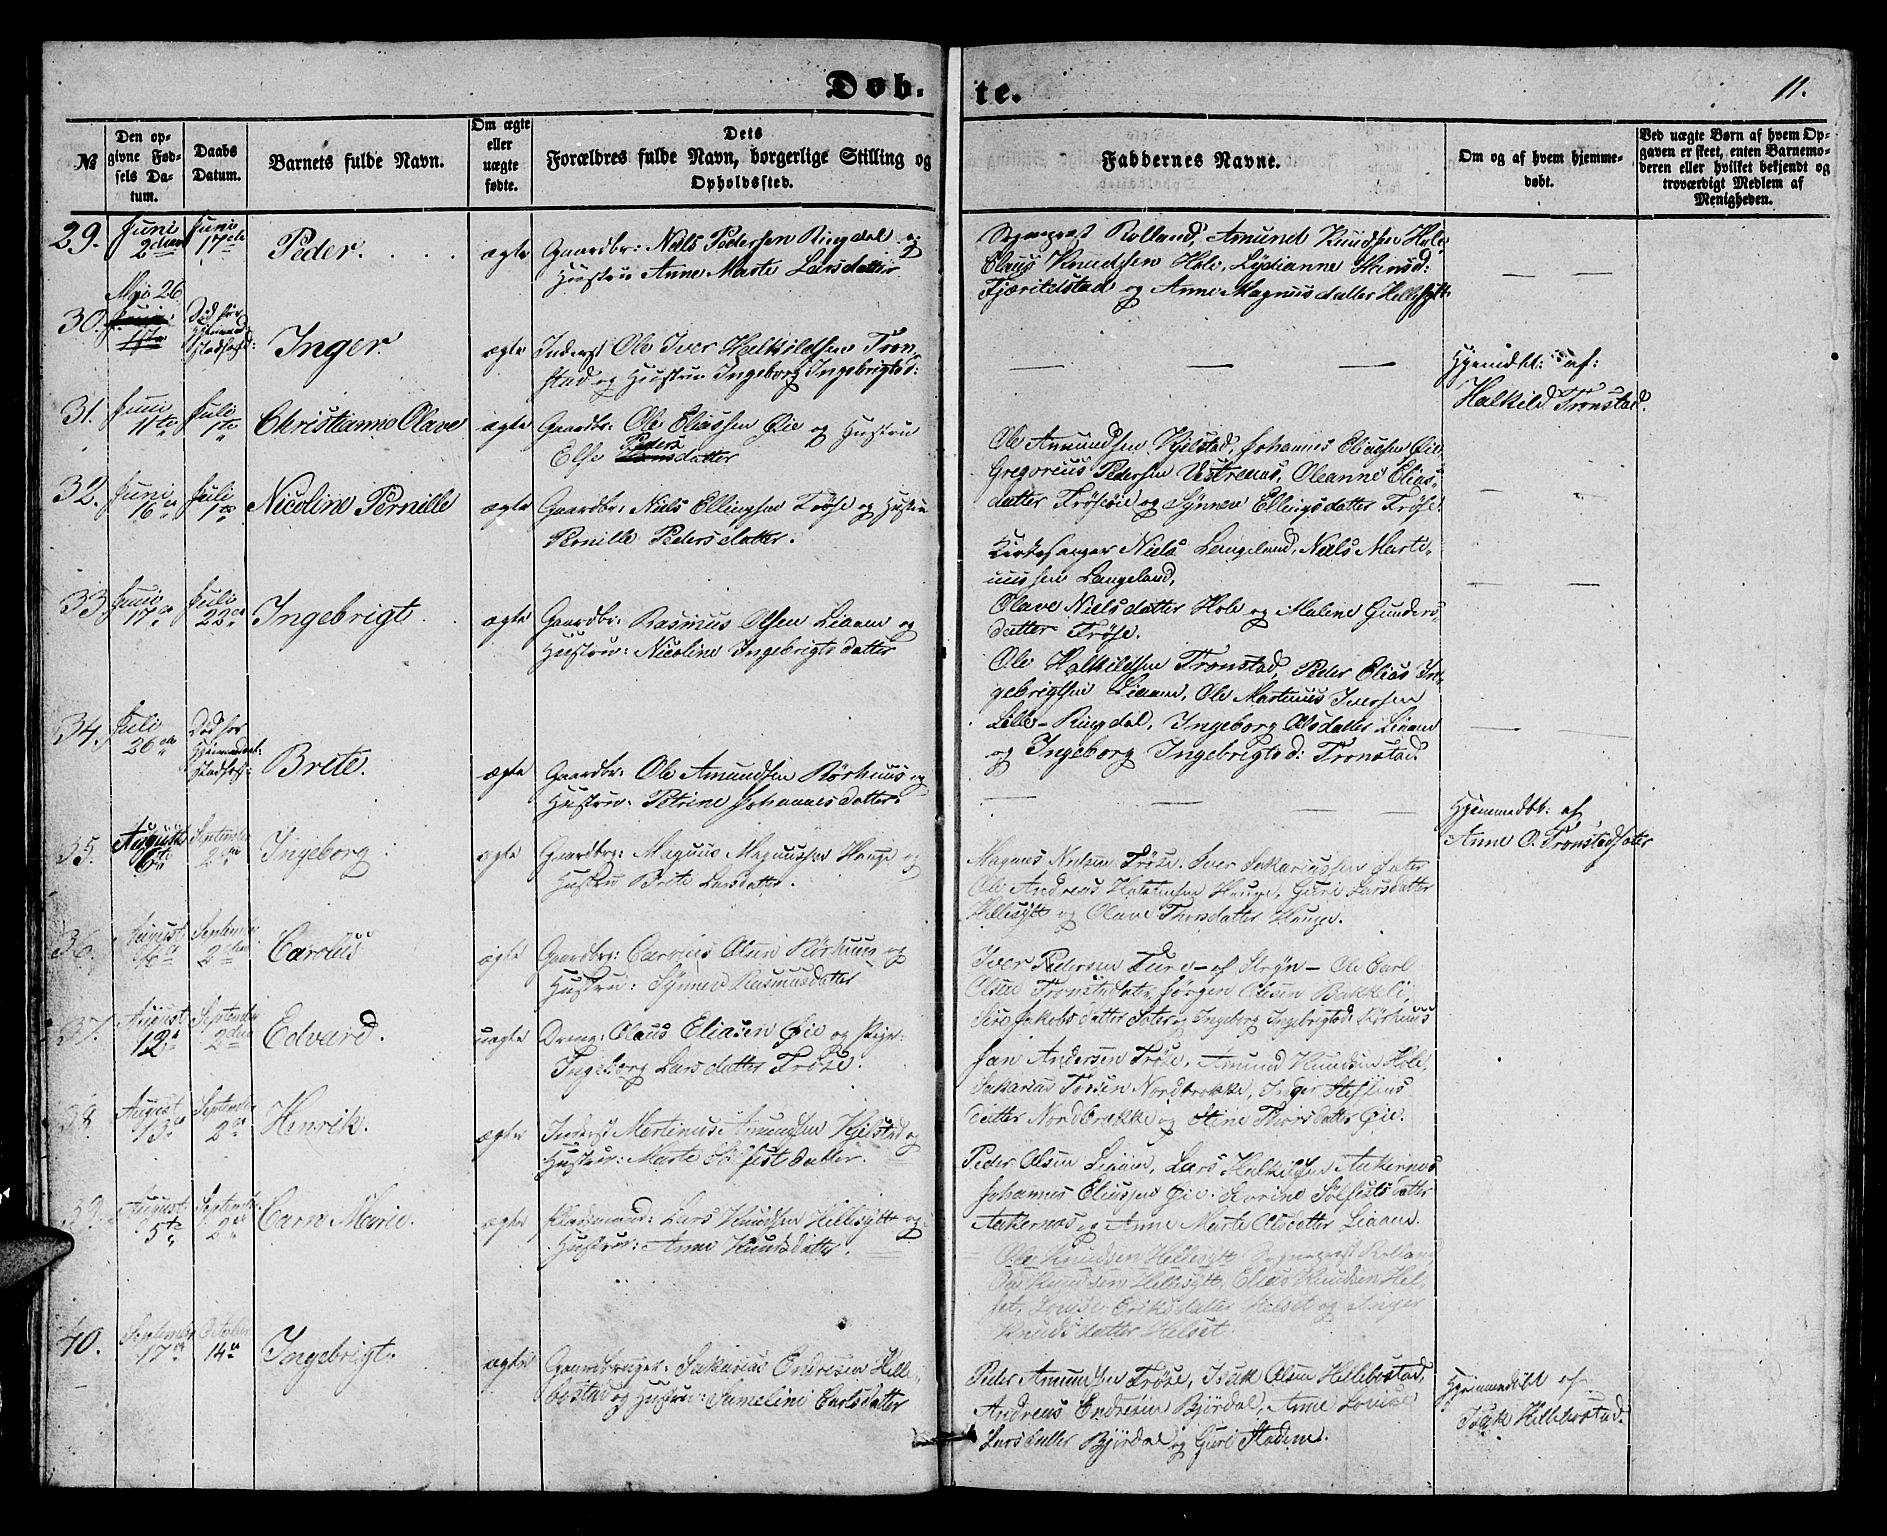 Døb-
te.
11.
№
Den op-
givne Fød-
sels Da-
tum.
Daabs
Datum.
Barnets fulde Navn.
Om ægte
eller
uægte
fødte.
Dets
Forældres fulde Navn, borgerlige Stilling og
Opholdssted.
Faddernes Navne.
Om og af hvem hjemme-
døbt.
Ved uægte Børn af hvem Op-
gaven er skeet, enten Barnemo-
deren eller hvilket bekjendt og
troværdigt Medlem af
Menigheden.
29.
Juni
2den
Juni
17de
Peder.
ægte
Gaardbr: Niels Pedersen Ringdal og
Hustru Anne Marte Larsdatter
Rolland, Amund Knudsen Hole
Claus Knudsen Hole, Lydianne
og Anne Magnusdatter Hellesylt
30.
Mai 26
Juni
1ste
Død før
Inger.
ægte
Inderst Ole Iver Halkildsen Tron-
stad og Hustru Ingeborg Ingebrigtsd:
Hjemdbt: af:
Halkild Tronstad.
31.
Juni
11te
Juli
1te
Christianne Olave
ægte
Gaardbr: Ole Eliassen Øie og Hustru
Peders
Else datter
Ole Amundsen Kjelstad, Johannes Eliassen Øie
Gregorius Pedersen Vestrenes, Oleanne Elias-
datter Frøsøie og Synnev Ellingsdatter Frøse
32.
Juni
16de
Juli
1te
Nicoline Pernille
ægte
Gaardbr: Niels Ellingsen Frøse og Hustru
Pernille Pedersdatter.
Kirkesanger Niels Langeland, Niels Marti-
nussen Langeland,
Olave Nielsdatter Hole og Malene Gunders-
datter Frøse.
33.
Juni
17de
Juli
22de
Ingebrigt.
ægte
Gaardbr: Rasmus Olsen Liaam og
Hustru: Nicoline Ingebrigtsdatter
Ole Halkildsen Tronstad, Peder Elias In-
gebrigtsen Liaam, Ole Martinus Iversen
Lille-Ringdal, Ingeborg Olsdatter Liaam
og Ingeborg Ingebrigtsd: Tronstad.
34.
Juli
26de
Død før
Brete.
ægte
Gaardbr: Ole Amundsen Rørhuus og
Hustru: Petrine Johannesdatter.
Hjemmedbt: af
Anne O. Tronstadsæter
35.
August
6te
September
2den
Ingeborg.
ægte
Gaardbr: Magnus Magnussen Hauge og
Hustru Brite Larsdatter.
Magnus Nielsen Frøse. Iver Sakariassen
Ole Andreas Hauge, Guri Larsdatter
Hellesylt og Olave Thorsdatter Hauge.
36.
August
September
2den
Carolus
ægte
Gaardbr: Carolus Olsen Rørhuus og
Hustru: Synnev Rasmusdatter
Iver Pedersen – af Stryn – Ole Carl
Olsen Tronstadsæter Jørgen Olsen Bakkeli,
Jakobsdatter Sæter og Ingeborg Ingebrigtsd: Rørhuus
37.
August
12.
September
2den
Edvard.
uægte
Dreng: Olaus Eliasen Øie og Pige:
Ingeborg Larsdatter Frøse.
Jan Andersen Frøse, Amund Knudsen Hole,
Sakarias Tosen Nordbrekke, Inger
datter Nordbrekke og Stine Thorsdatter Øie.
38.
August
13de
September
2de
Henrik.
ægte
Inderst Martinus Amundsen Kjelstad og
Hustru: Marte Sølfestdatter.
Peder Olsen Liaam, Lars Halkildsen Aakernes
Johannes Eliassen Øie. Sølfestsdatter
Aakernes og Anne Marte Olsdatter Liaam.
39.
August
5te
September
2de
Carn Marie.
ægte
Pladsmand: Lars Knudsen Hellesylt og
Hustru: Anne Knudsdatter.
Ole Knudsen Hellesylt, Rolland
Knudsen Hellesylt, Elias Knudsen Hel-
set, Louise Eriksdatter Helset og Inger
Knudsdatter Helset.
40.
September
17de
October
14de
Ingebrigt.
ægte
Gaardbruger: Sakarias Endresen Helle-
bostad og Hustru: Sameline Carlsdatter
Peder Amundsen Frøse, Isak Olsen Hellebostad,
Andreas Endresen Bjørdal, Anne Lovise
Larsdatter Bjørdal og Guri Stadem.
Hjemmedbt af
Isak Hellebostad.